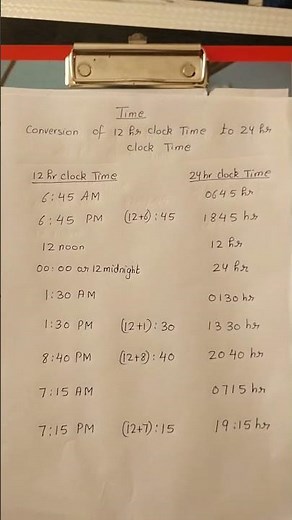 Time
Conversion of 12 hr clock Time to 24 hr
clock Time
12 hr clock Time 24 hr clock Time
6:45 AM 0645 hr
6:45 PM (12+6):45 1845 hr
12 noon 12 hr
00:00 or 12 midnight 24 hr
1:30 AM 0130 hr
1:30 PM (12+1):30 1330 hr
8:40 PM (12+8):40 2040 hr
7:15 AM 0715 hr
7:15 PM (12+7):15 19:15 hr